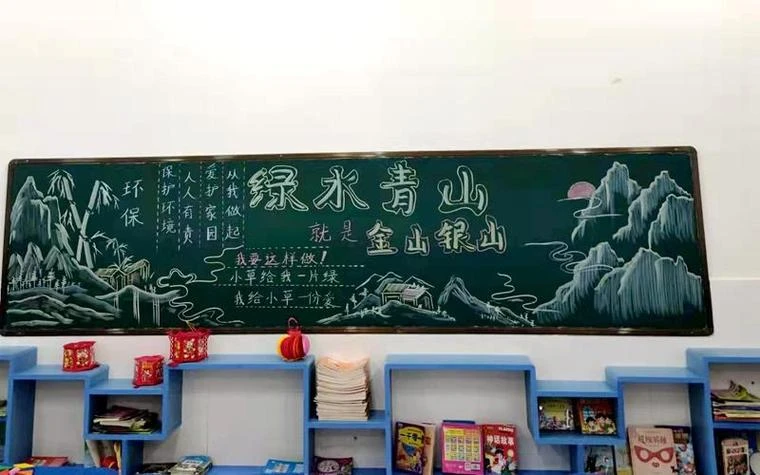 绿水青山
就是金山银山
环保
从我做起
爱护家园
人人有责
保护环境
我要这样做！
小草给我一片绿
我给小草一份爱
一千零一夜
神话故事